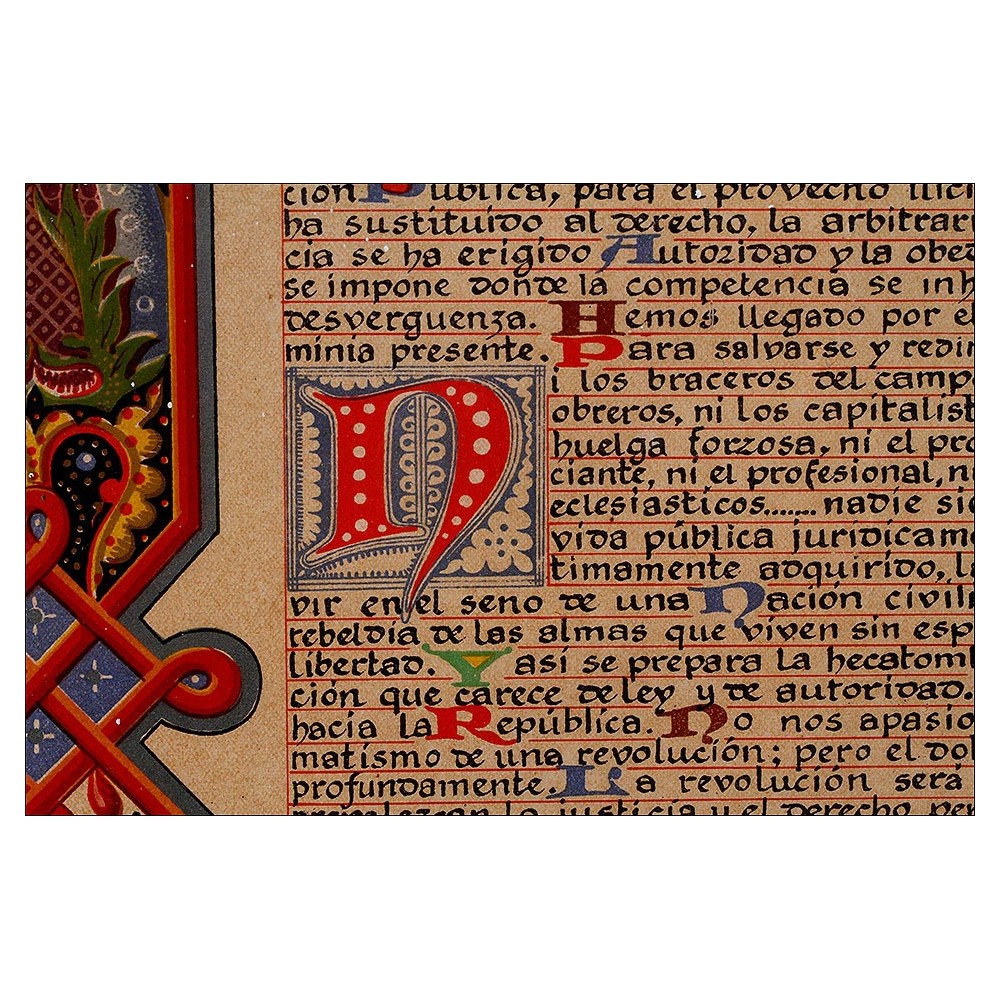 ción Pública, para el provecho ilíci
ha sustituído al derecho, la arbitrari
cia se ha erigido Autoridad y la obed
se impone donde la competencia se inh
desvergüenza. Hemos llegado por el
minia presente. Para salvarse y redim
i los braceros del campo
obreros, ni los capitalist
huelga forzosa, ni el pro
ciante, ni el profesional, ni
eclesiasticos....... nadie sie
vida pública juridicam
timamente adquirido, la
N
vir en el seno de una Nación civili
rebeldía de las almas que viven sin esp
libertad. Y así se prepara la hecatom
ción que carece de ley y de autoridad.
hacia la República. No nos apasio
matismo de una revolución; pero el dol
profundamente. La revolución será
prevalezcan la justicia y el derecho per